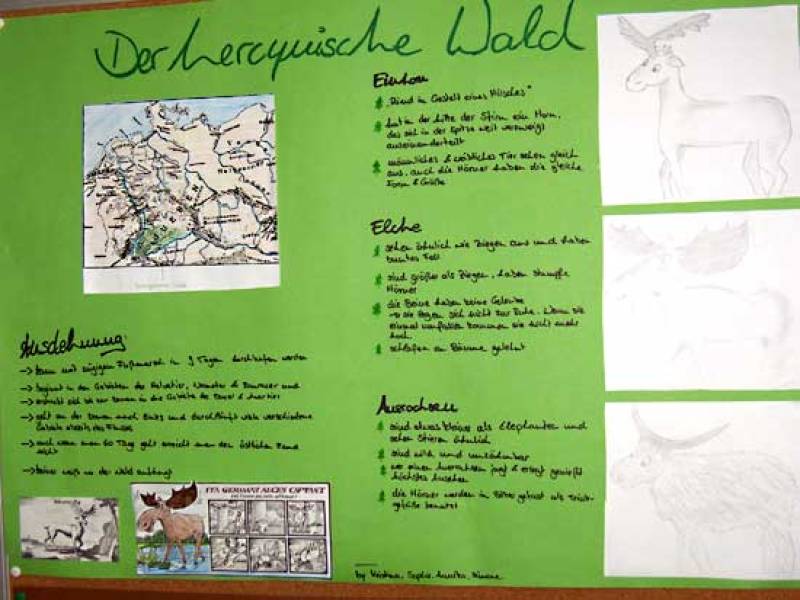 Der hercynische Wald
Ausdehnung
→ kann mit zügigem Fußmarsch in 9 Tagen durchlaufen werden
→ beginnt in den Gebieten der Helvetier, Nemeter & Rauracer und
→ erstreckt sich bis zur Donau in die Gebiete der Daker & Anartier
→ geht an der Donau nach links und durchläuft viele verschiedene
Gebiete abseits des Flusses
→ auch wenn man 60 Tage geht erreicht man den östlichen Rand
nicht
→ keiner weiß wo der Wald anfängt
Einhorn
"Rind in Gestalt eines Hirsches"
hat in der Mitte der Stirn ein Horn,
das sich in der Spitze weit verzweigt
auseinanderteilt
männliches & weibliches Tier sehen gleich
aus, auch die Hörner haben die gleiche
Form & Größe
Elche
sehen ähnlich wie Ziegen aus und haben
buntes Fell
sind größer als Ziegen, haben stumpfe
Hörner
die Beine haben keine Gelenke
→ sie legen sich nicht zur Ruhe. Wenn sie
einmal umfallen kommen sie nicht mehr
hoch
schlafen an Bäume gelehnt
Auerochsen
sind etwas kleiner als Elephanten und
sehen Stieren ähnlich
sind wild und unzähmbar
wer einen Auerochsen jagt & erlegt genießt
höchstes Ansehen
die Hörner werden in Silber gefasst als Trink-
gefäße benutzt
ITA GERMANI ALCES CAPTANT
by Kristina, Sophie, Annika, Simone